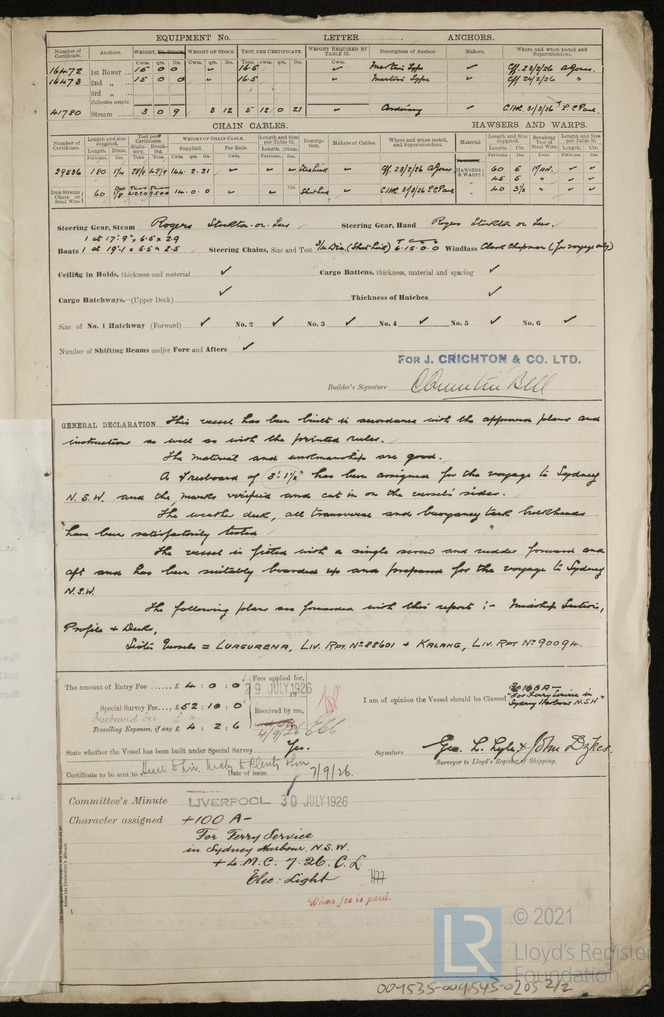 EQUIPMENT No. LETTER ANCHORS.
Number of Certificate. Anchors. WEIGHT, Ex. STOCK. WEIGHT OF STOCK. TEST, PER CERTIFICATE. WEIGHT REQUIRED BY TABLE 33. Description of Anchor. Makers. Where and when tested and Superintendent.
Cwts. qrs. lbs. Cwts. qrs. lbs. Tons. cwts. qrs. lbs. Cwts.
16472 1st Bower 15 0 0 16.5 Martins Type Cff. 23/2/26 A Jones.
16473 2nd „ 15 0 0 16.5 Martins Type Cff 24/2/26 „
3rd „
Collective weight.
41780 Stream 3 0 9 3 12 5 12 0 21 Ordinary C.H. 3/3/26
CHAIN CABLES. HAWSERS AND WARPS.
Number of Certificate. Length and size supplied. Test per Certificate. WEIGHT OF CHAIN CABLE. Length and size per Table 33. Description. Makers of Cables. Where and when tested, and Superintendent. Material Length and size supplied. Breaking Test of Steel Wire. Length and size per Table 33.
29536 180 1 1/4 144.2.21 Cff. 23/2/26 A Jones. HAWSERS & WARPS 60 5
45 5 „
Iron Stream Chain or Steel Wire 60 14.0.0 C.H. 3/3/26 40 3 1/2 „
Steering Gear, Steam Rogers Stockton-on-Tees Steering Gear, Hand Rogers Stockton on Tees.
Boats 1 at 17'.9" x 6.5 x 2.9
1 at 19.1 x 6.6 x 2.5 Steering Chains, Size and Test 6.15.0.0 Windlass Clark Chapman (for voyage only)
Ceiling in Holds, thickness and material ✓ Cargo Battens, thickness, material and spacing ✓
Cargo Hatchways.—(Upper Deck) ✓ Thickness of Hatches ✓
Size of No. 1 Hatchway (Forward) ✓ No. 2 ✓ No. 3 ✓ No. 4 ✓ No. 5 ✓ No. 6 ✓
Number of Shifting Beams and/or Fore and Afters ✓
FOR J. CRICHTON & CO. LTD.
Builder's Signature C Quintin Bell
GENERAL DECLARATION This vessel has been built in accordance with the approved plans and
instructions as well as with the printed rules.
The material and workmanship are good.
A Freeboard of 3'-1½" has been assigned for the voyage to Sydney
N.S.W. and the marks verified and cut in on the vessels sides.
The weather deck, all transverse and buoyancy tank bulkheads
have been satisfactorily tested
The vessel is fitted with a single screw and rudder forward and
aft and has been suitably boarded up and prepared for the voyage to Sydney
N.S.W.
The following plans are forwarded with this report :- Midship Section,
Profile & Decks,
Sister Vessels = LURGURENA, LIV. RPT. No 88601 & KALANG, LIV. RPT No 90094.
The amount of Entry Fee £ 4 : 0 : 0
Special Survey Fee £ 52 : 10 : 0
Freeboard Fee £ 4
Travelling Expenses, if any £ 4 : 2 . 6
Fees applied for,
29 JULY 1926
Received by me,
4/9/26
I am of opinion the Vessel should be Classed 100 A-
"For Ferry Service in
Sydney Harbour N.S.W"
State whether the Vessel has been built under Special Survey Yes.
Signature Geo. L. Lyle & John Dykes
Surveyor to Lloyd's Register of Shipping.
Certificate to be sent to Date of issue 7/9/26.
Committee's Minute LIVERPOOL 30 JULY 1926
Character assigned +100 A-
For Ferry Service
in Sydney Harbour, N.S.W.
+ L.M.C. 7.26. C.L
Elec: Light
When fee is paid.
LR
© 2021
Lloyd's Register
Foundation
004535-004545-0205 2/2